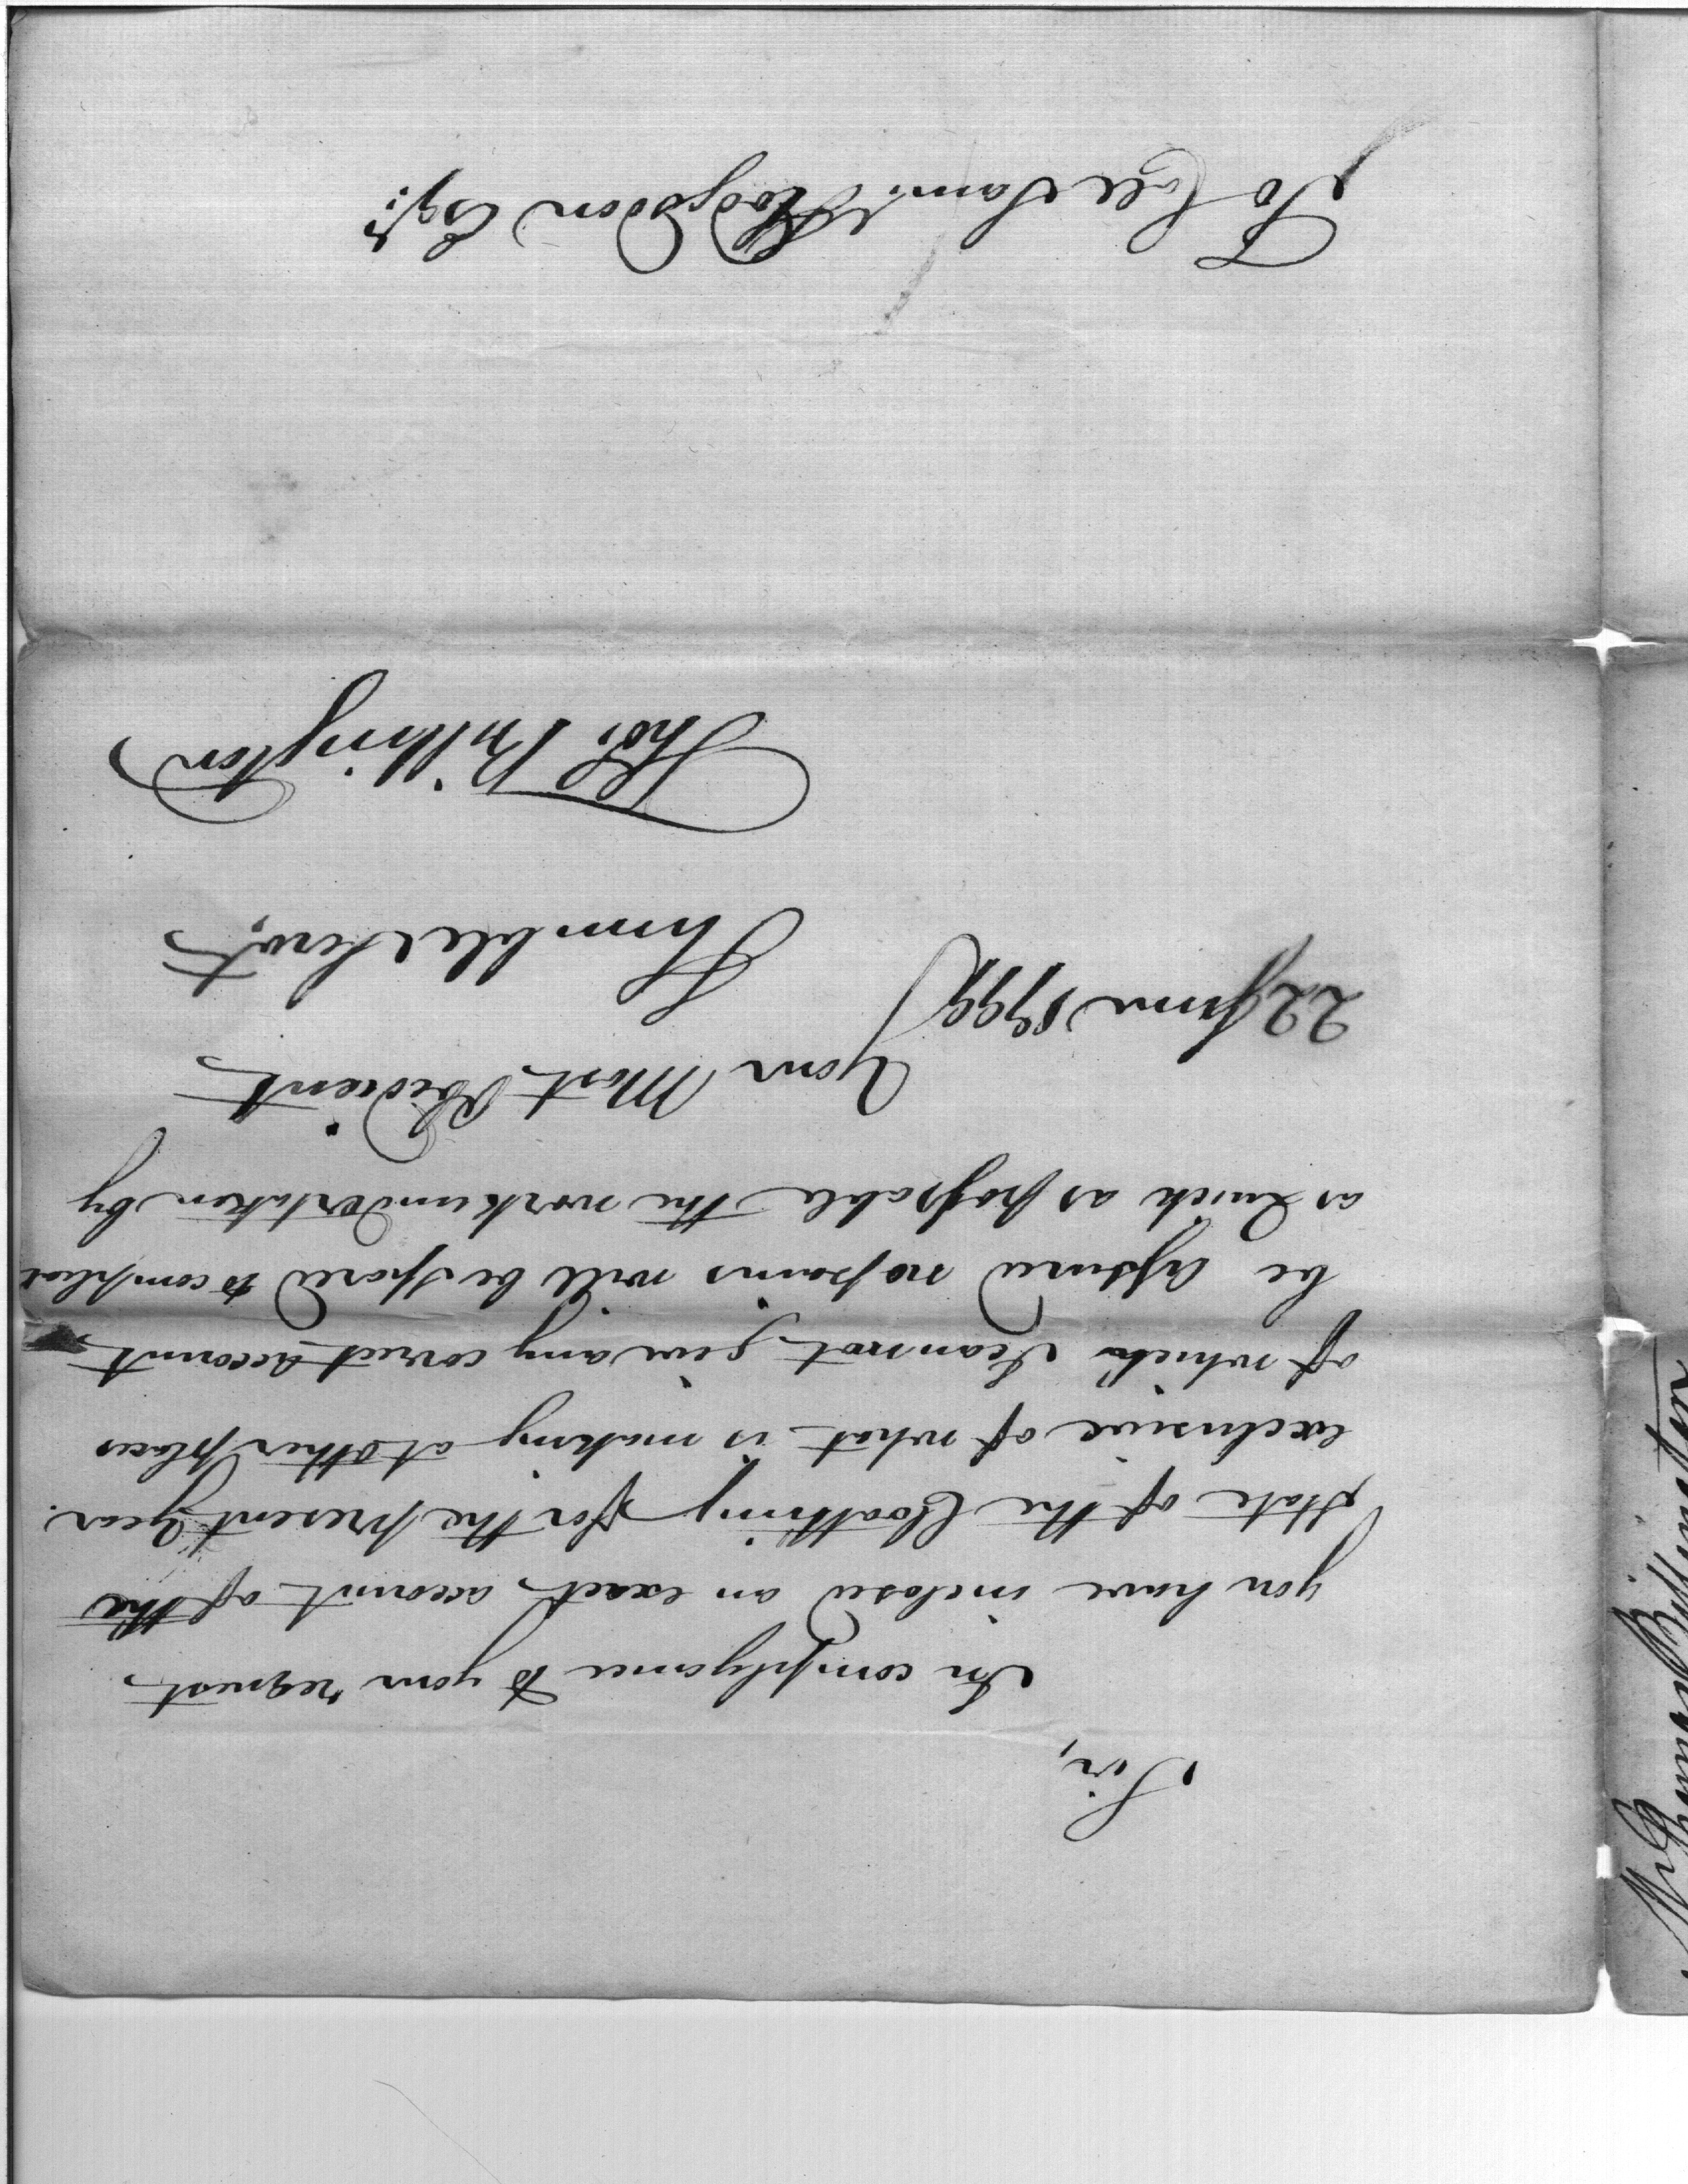 Sir,
In complyance to your request
you have inclosed an exact account of the
state of the Cloathing for the present Year.
exclusive of what is making at other places
of which I cannot give any correct account
be assured no pains will be spared to compleat
as Quick as possable the work undertaken by
Your Most Obedient
22 June 1799
Humble Servt,
Thos. Billington
To Coll Saml. Hodgsdon Esqr.
Thomas Billington